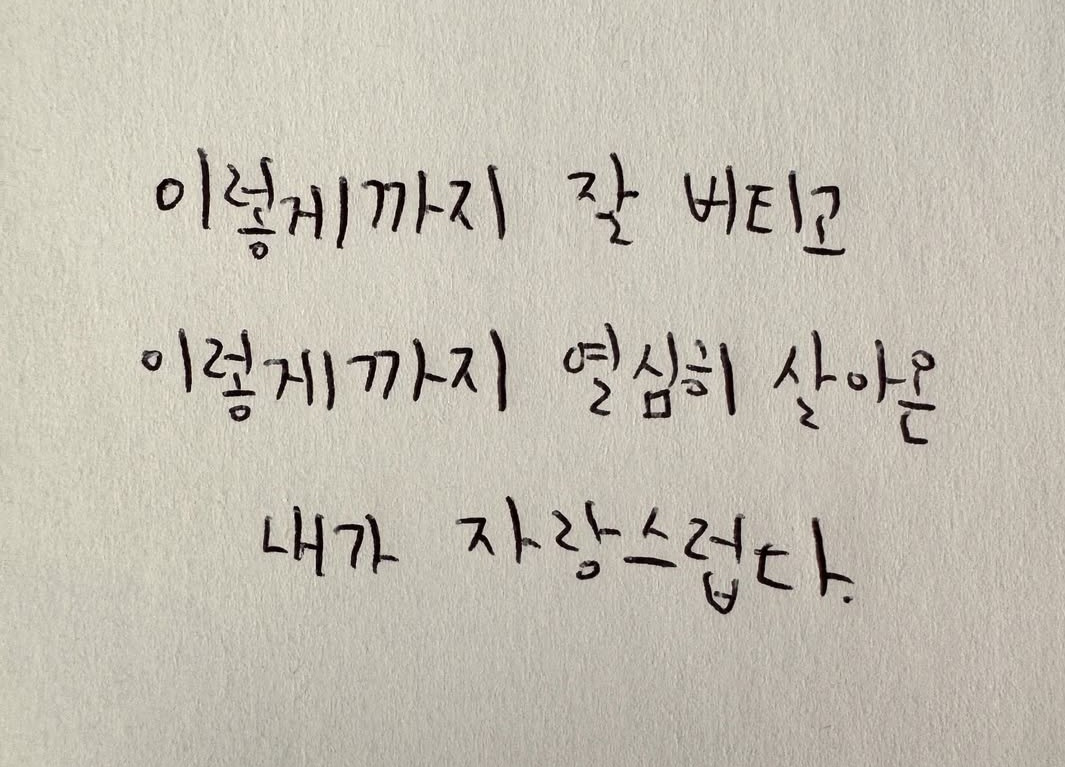 이렇게까지 잘 버티고
이렇게까지 열심히 살아온
내가 자랑스럽다.